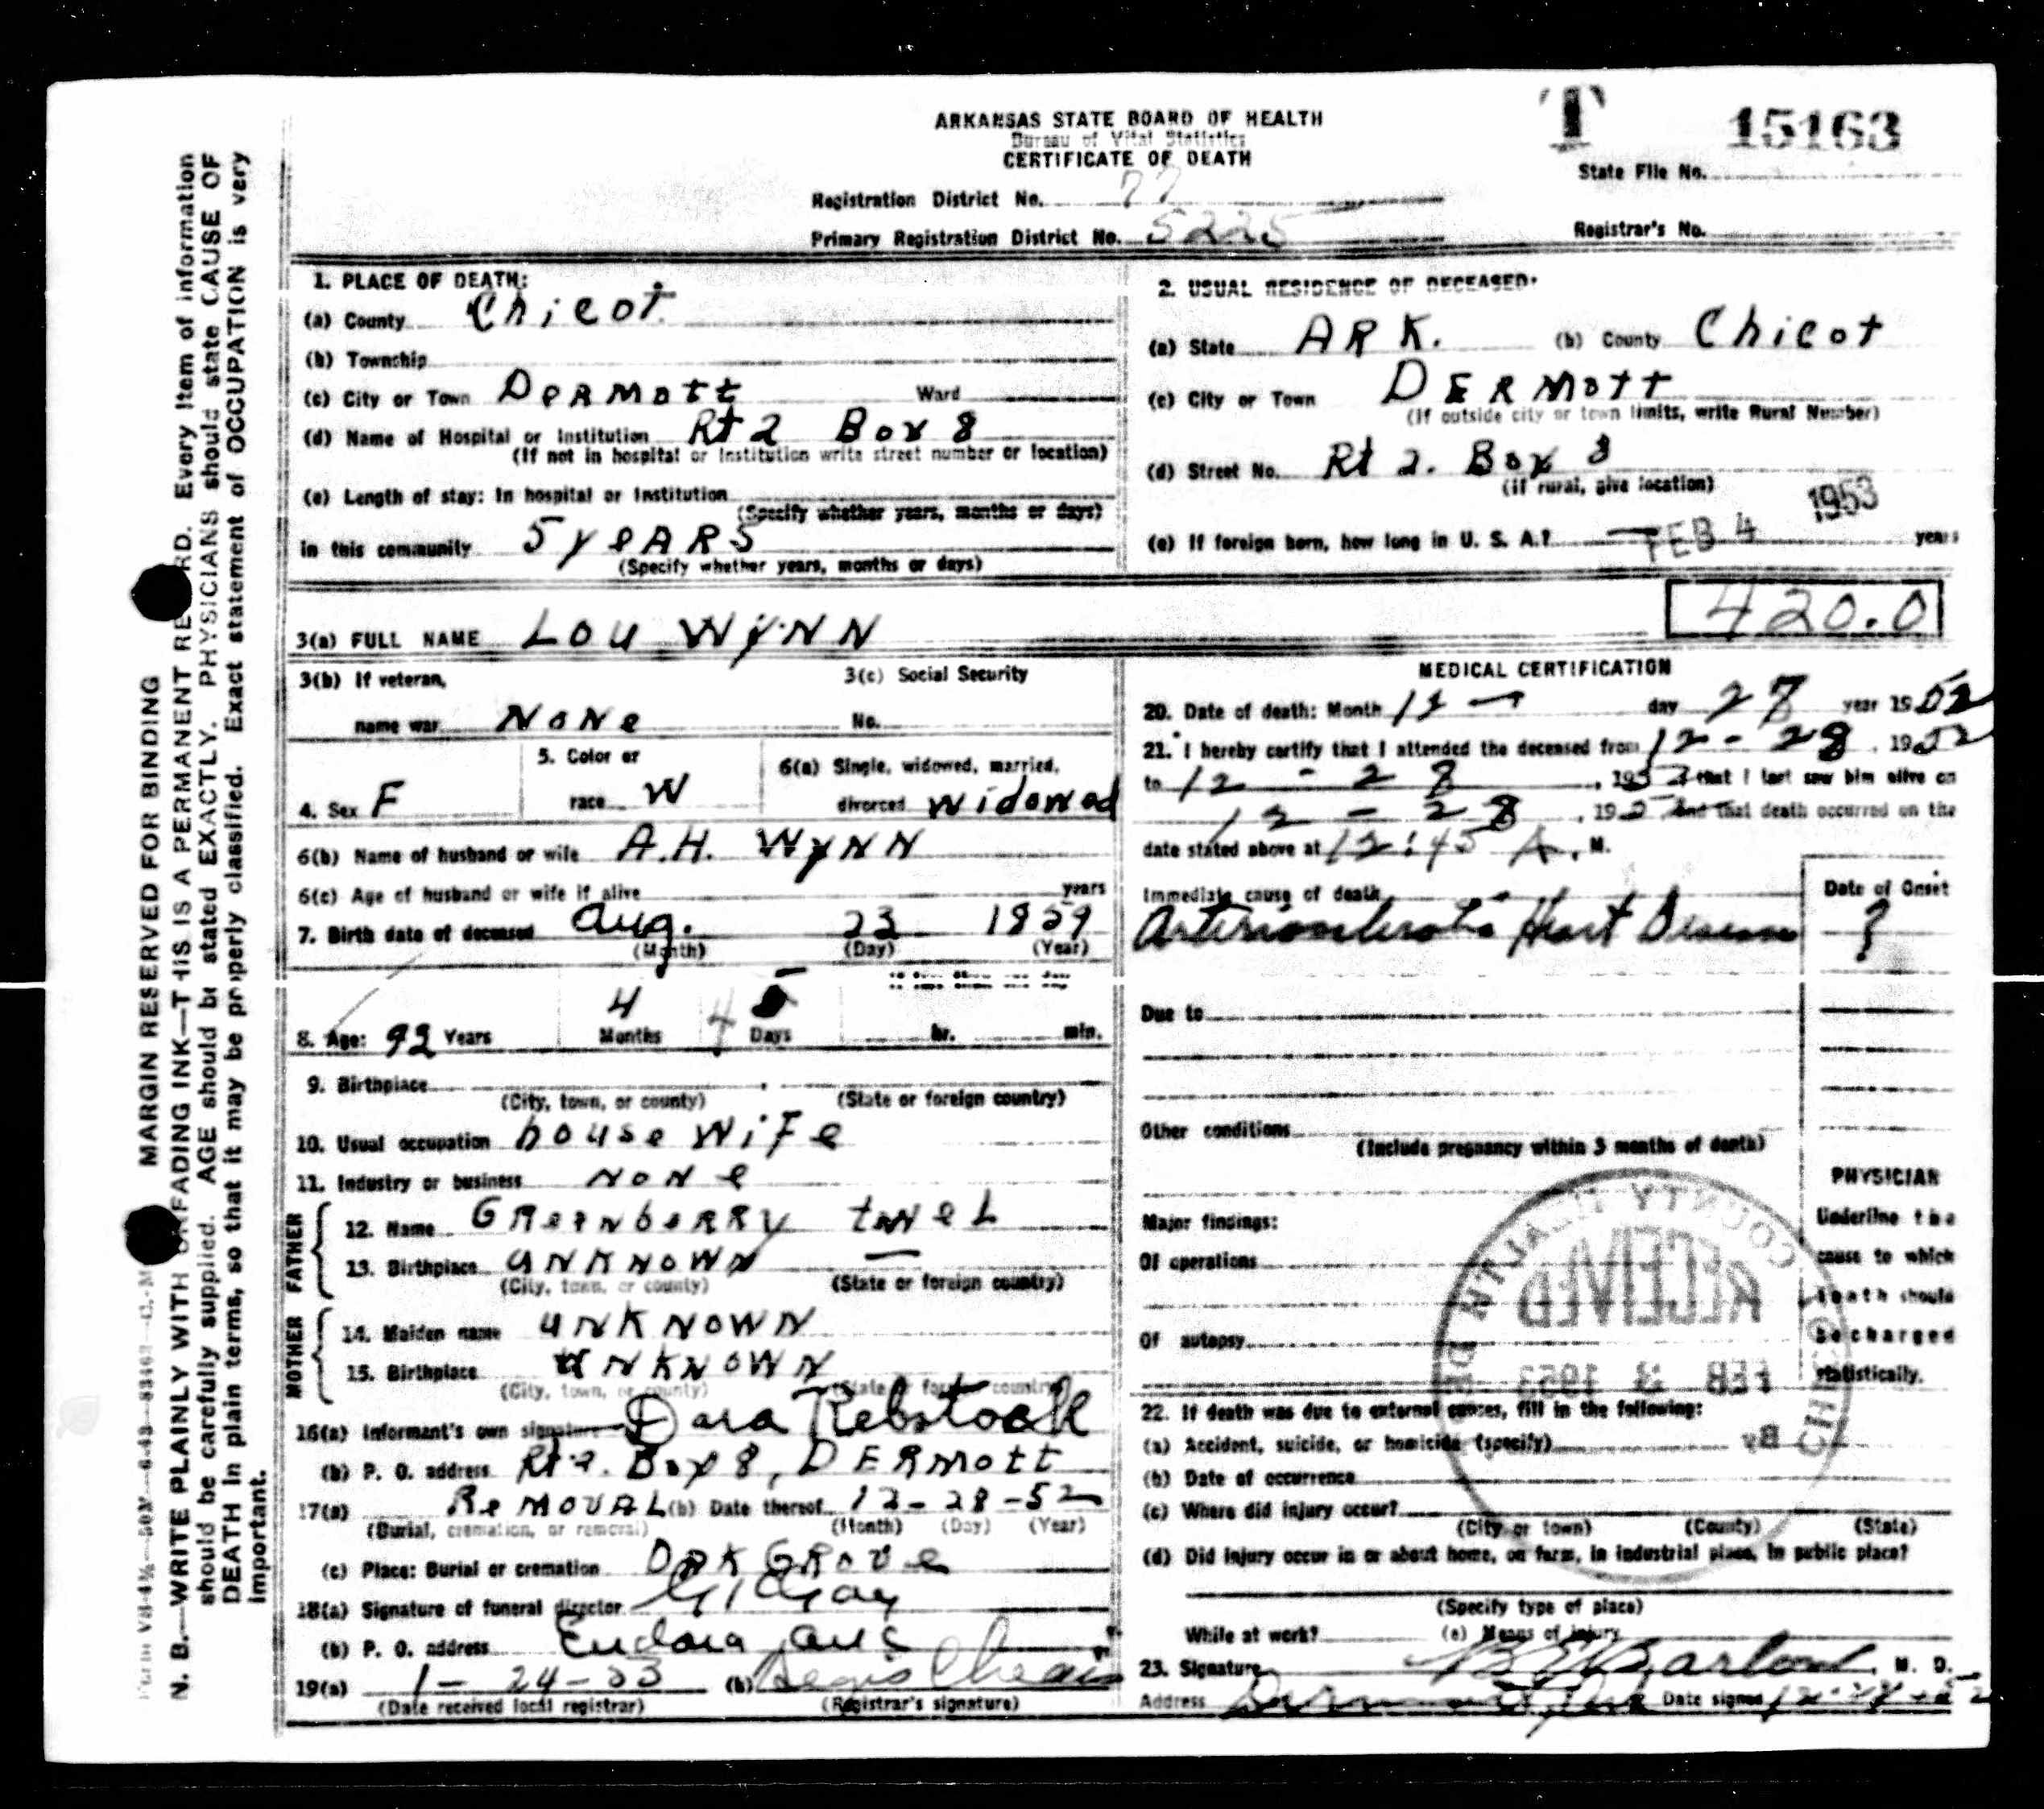 ARKANSAS STATE BOARD OF HEALTH
Bureau of Vital Statistics
CERTIFICATE OF DEATH
T 15163
State File No.
Registration District No. 77
Primary Registration District No. 5225
Registrar's No.
1. PLACE OF DEATH:
(a) County Chicot
(b) Township
(c) City or Town DeRMott Ward
(d) Name of Hospital or Institution Rt 2 Box 8
(If not in hospital or Institution write street number or location)
(e) Length of stay: In hospital or Institution
(Specify whether years, months or days)
in this community 5 yeARS
(Specify whether years, months or days)
2. USUAL RESIDENCE OF DECEASED:
(a) State ARK. (b) County Chicot
(c) City or Town DERMOTT
(If outside city or town limits, write Rural Number)
(d) Street No. Rt 2. Box 8
(if rural, give location)
(e) If foreign born, how long in U. S. A.? years
FEB 4 1953
3(a) FULL NAME LOU WYNN
420.0
3(b) If veteran,
name war NONe
3(c) Social Security
No.
4. Sex F
5. Color or
race W
6(a) Single, widowed, married,
divorced widowed
6(b) Name of husband or wife A.H. WYNN
6(c) Age of husband or wife if alive years
7. Birth date of deceased Aug. 23 1859
(Month) (Day) (Year)
8. Age: 93 Years 4 Months 4 5 Days hr. min.
9. Birthplace
(City, town, or county) (State or foreign country)
10. Usual occupation house WiFe
11. Industry or business NoNe
FATHER
12. Name GReenbeRRy
13. Birthplace UNKNOWN —
(City, town, or county) (State or foreign country)
MOTHER
14. Maiden name UNKNOWN
15. Birthplace UNKNOWN
(City, town, or county) (State or foreign country)
16(a) Informant's own signature Dara Rebstock
(b) P. O. address Rt 2. Box 8, DERMott
17(a) ReMOVAL (b) Date thereof 12-28-52
(Burial, cremation, or removal) (Month) (Day) (Year)
(c) Place: Burial or cremation OAK GROVe
18(a) Signature of funeral director
(b) P. O. address Eudora
19(a) 1-24-53 (b)
(Date received local registrar) (Registrar's signature)
MEDICAL CERTIFICATION
20. Date of death: Month 12 — day year 1952
21. I hereby certify that I attended the deceased from 12-28, 1952
to 12-28, 1952 that I last saw him alive on
12-28, 195 and that death occurred on the
date stated above at 12:45 A. M.
Immediate cause of death Date of Onset
Arteriosclerotic Heart Disease ?
Due to
Other conditions
(Include pregnancy within 3 months of death)
Major findings:
Of operations
Of autopsy
PHYSICIAN
Underline the
cause to which
death should
be charged
statistically.
COUNTY HEALTH
RECEIVED
FEB 3 1953
By
22. If death was due to external causes, fill in the following:
(a) Accident, suicide, or homicide (specify)
(b) Date of occurrence
(c) Where did injury occur?
(City or town) (County) (State)
(d) Did injury occur in or about home, on farm, in industrial place, in public place?
(Specify type of place)
While at work? (e) Means of injury
23. Signature B E Barlow, M. D.
Address Dermott, Ark Date signed 12-28-52
MARGIN RESERVED FOR BINDING
N. B.—WRITE PLAINLY WITH UNFADING INK—THIS IS A PERMANENT RECORD. Every item of information
should be carefully supplied. AGE should be stated EXACTLY. PHYSICIANS should state CAUSE OF
DEATH in plain terms, so that it may be properly classified. Exact statement of OCCUPATION is very
important.